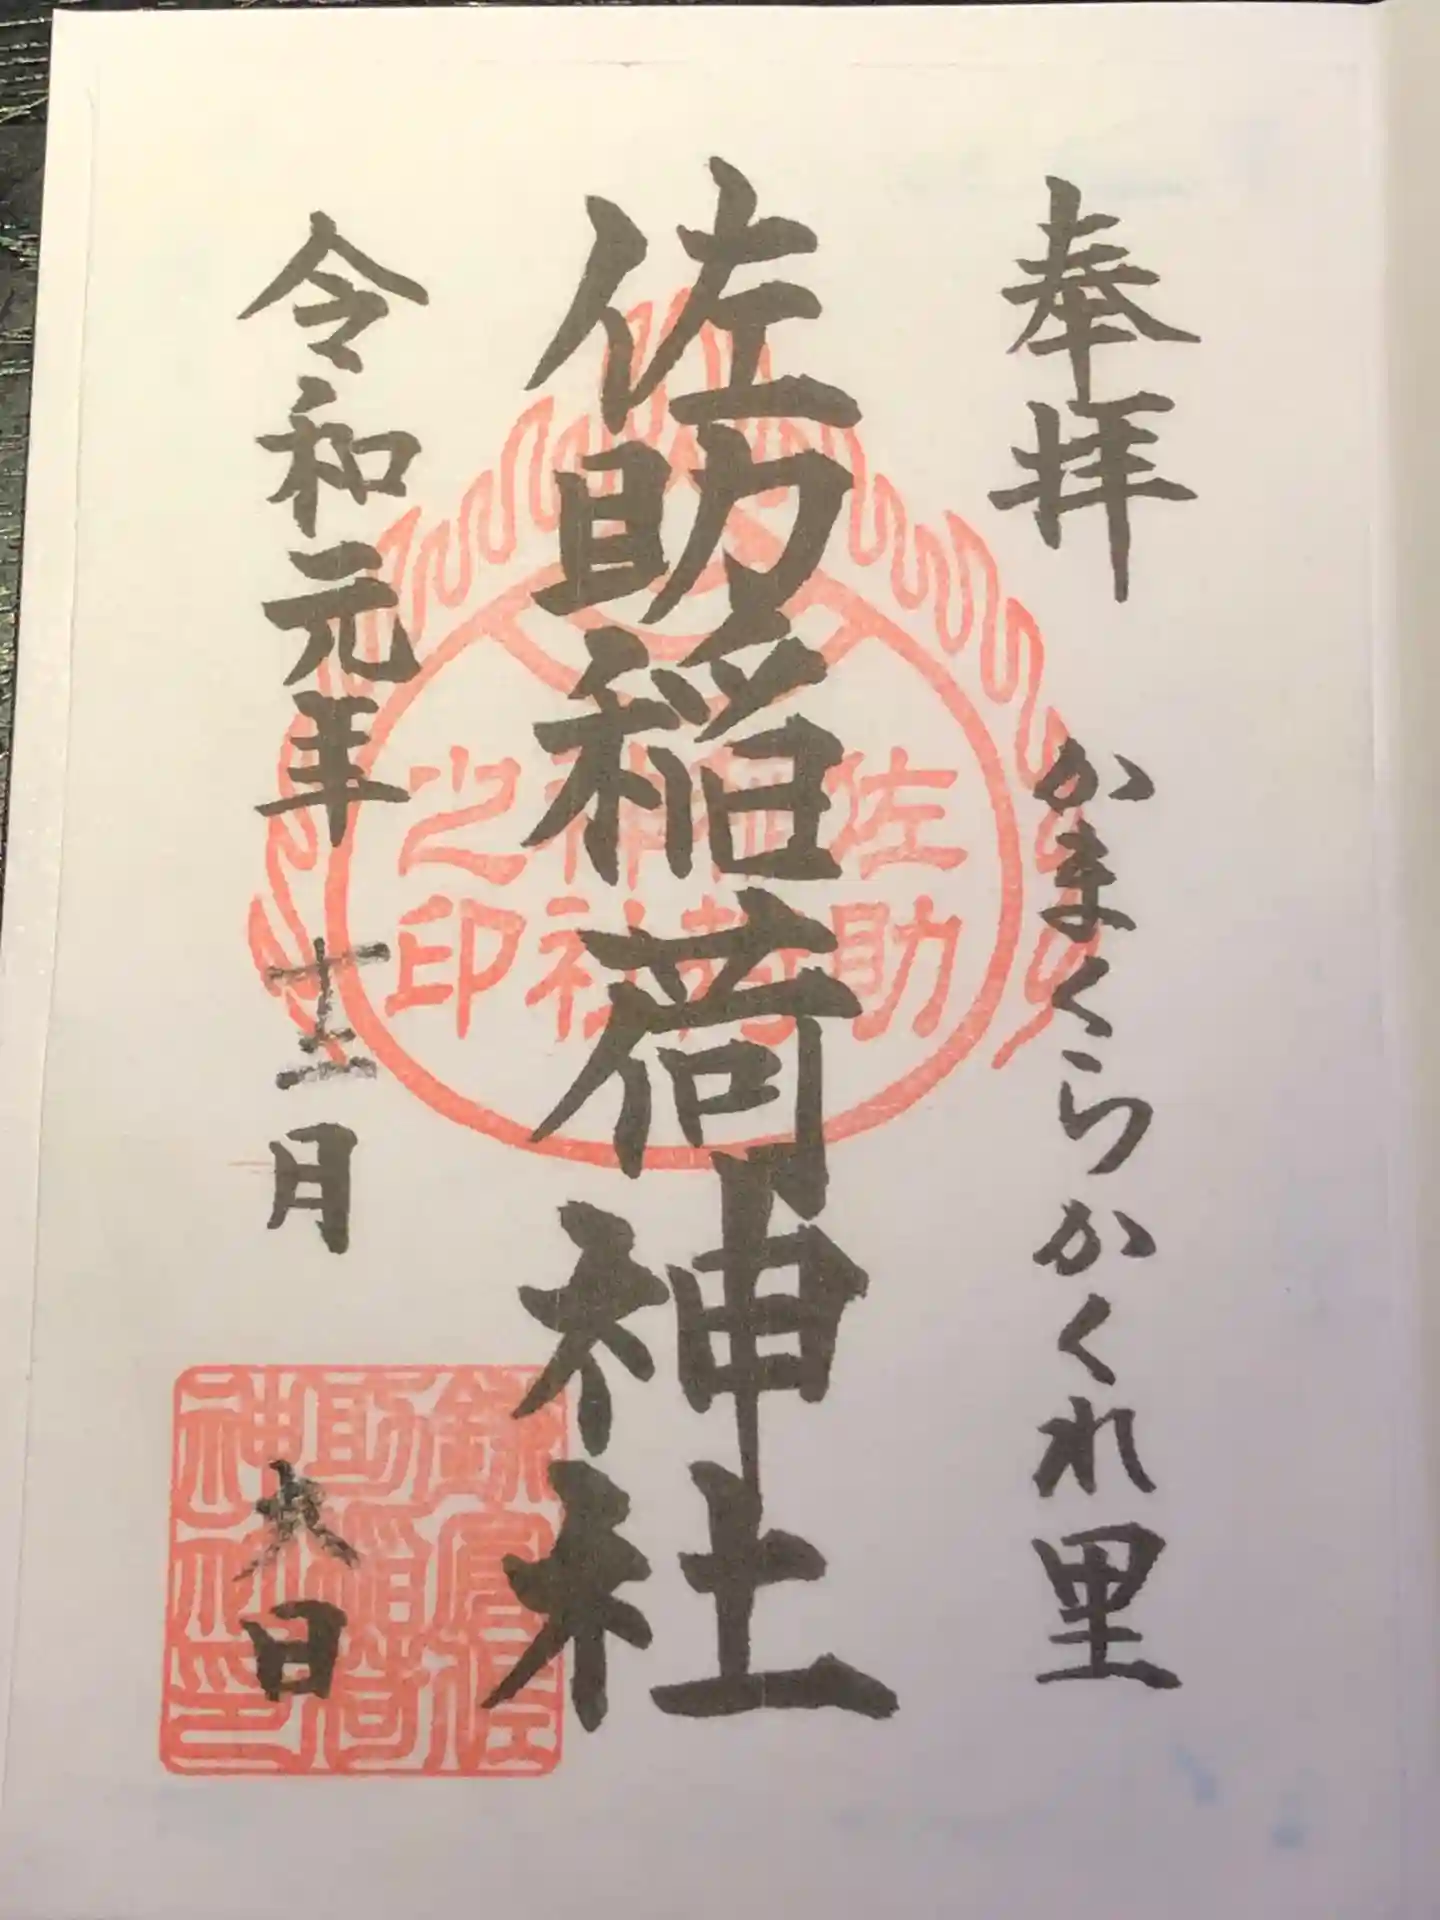 奉拝
かまくらかくれ里
佐助稲荷神社
令和元年 十二月 日
佐助
稲荷
神社
之印
鎌倉佐
助稲荷
神社印